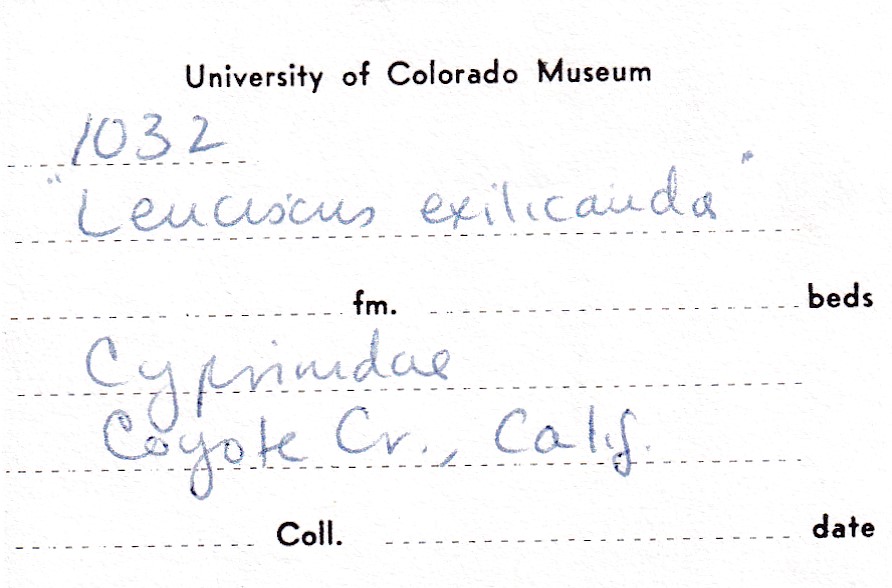 University of Colorado Museum
1032
"Leuciscus exilicauda"
fm. beds
Cyprinidae
Coyote Cr., Calif.
Coll. date